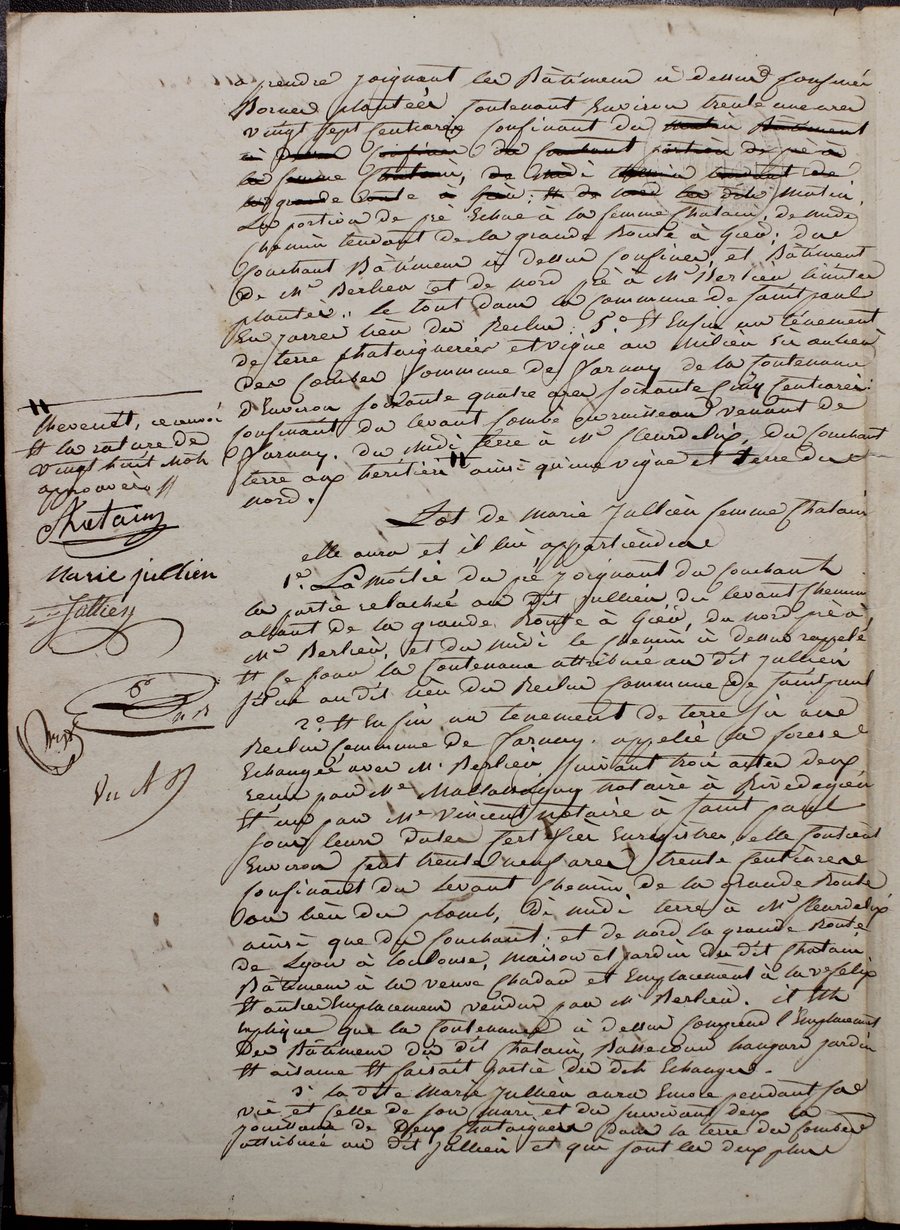 a prendre joignant les Bâtiment ci dessus confinés
Bornes plantées contenant Environ trente une ares
vingt sept Centiares confinant du matin Bâtiment
ci dessus Confinés du Couchant portion de pré a
la femme Chatain, de midi chemin tendant de
la grande route à Gier, et de nord les dits Matin,
La portion de pré Echue à la femme Chatain, de midi
Chemin tendant de la grande Route à Gier, du
Couchant Bâtiment ci dessus Confinés, et Bâtiment
de Mr Berlier et de nord pré à Mr Berlier limites
plantées, le tout dans la Commune de Saint paul
En Jarrez lieu du Reclus. 5.° Et Enfin un ténement
de terre chataigneries et vigne au milieu sis au lieu
des Combes Commune de Farnay de la Contenance
d'Environ soixante quatre ares soixante Cinq Centiares
Confinant du levant Combe ou ruisseau venant de
Farnay, du midi terre à Mr fleurdelix, du Couchant
terre aux héritiers ainsi qu'une vigne et terre du
nord.
Thevenet, renvoi
Et la rature de
vingt huit mots
approuvés
Chatain
Marie jullien
Jullien
Lot de Marie Jullien femme Chatain
elle aura et il lui appartiendra
1.° La Moitié du pré joignant du Couchant
la partie relachée au dit Jullien du levant Chemin
allant de la grande Route à Gier, du nord pré à
Mr Berlier, et du midi le Chemin ci dessus rappelé
Et Ce pour la Contenance attribuée au dit Jullien
situé au dit lieu du Reclus Commune de Saint paul
2.° Et Enfin un tenement de terre sis au
Reclus Commune de Farnay, appelée la forese
Echangée avec Mr Berlier, suivant trois actes deux
reçus par Me notaire à Rivedegier
Et un par Me Vincent notaire à Saint paul
pour leurs dates Certifiés Enregistrés, elle Contient
Environ Cent trente neuf ares trente Centiares
Confinant du levant Chemin de la grande Route
au lieu du plomb, de midi terre à Mr fleurdelix
ainsi que du Couchant, et de nord la grande Route
de Lyon à toulouse, Maison et jardin du dit Chatain
Bâtiment à la veuve Chadau et Emplacement à la ve
Et autres Emplacement vendus par Mr Berlier. il Est
Expliqué que la Contenance ci dessus Comprend l'Emplacement
Des Bâtiment du dit Chatain, Bassecour hangard jardin
Et aisance Et faisait partie des dits Echanges.
3.° la dite Marie Jullien aura Encore pendant sa
vie et Celle de son Mari et du survivant deux la
jouissance de Deux Chataigners dans la terre des Combes
attribuée au dit Jullien et qui sont les deux plus